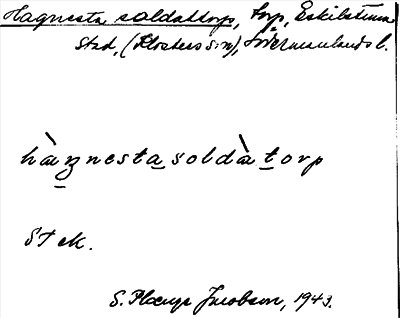 Hagnesta soldattorp, torp, Eskilstuna
Stad, (Klosters sn), Södermanlands l.
hàŋnesta soldàtorp
St ek.
S. Plænge Jacobson, 1943.